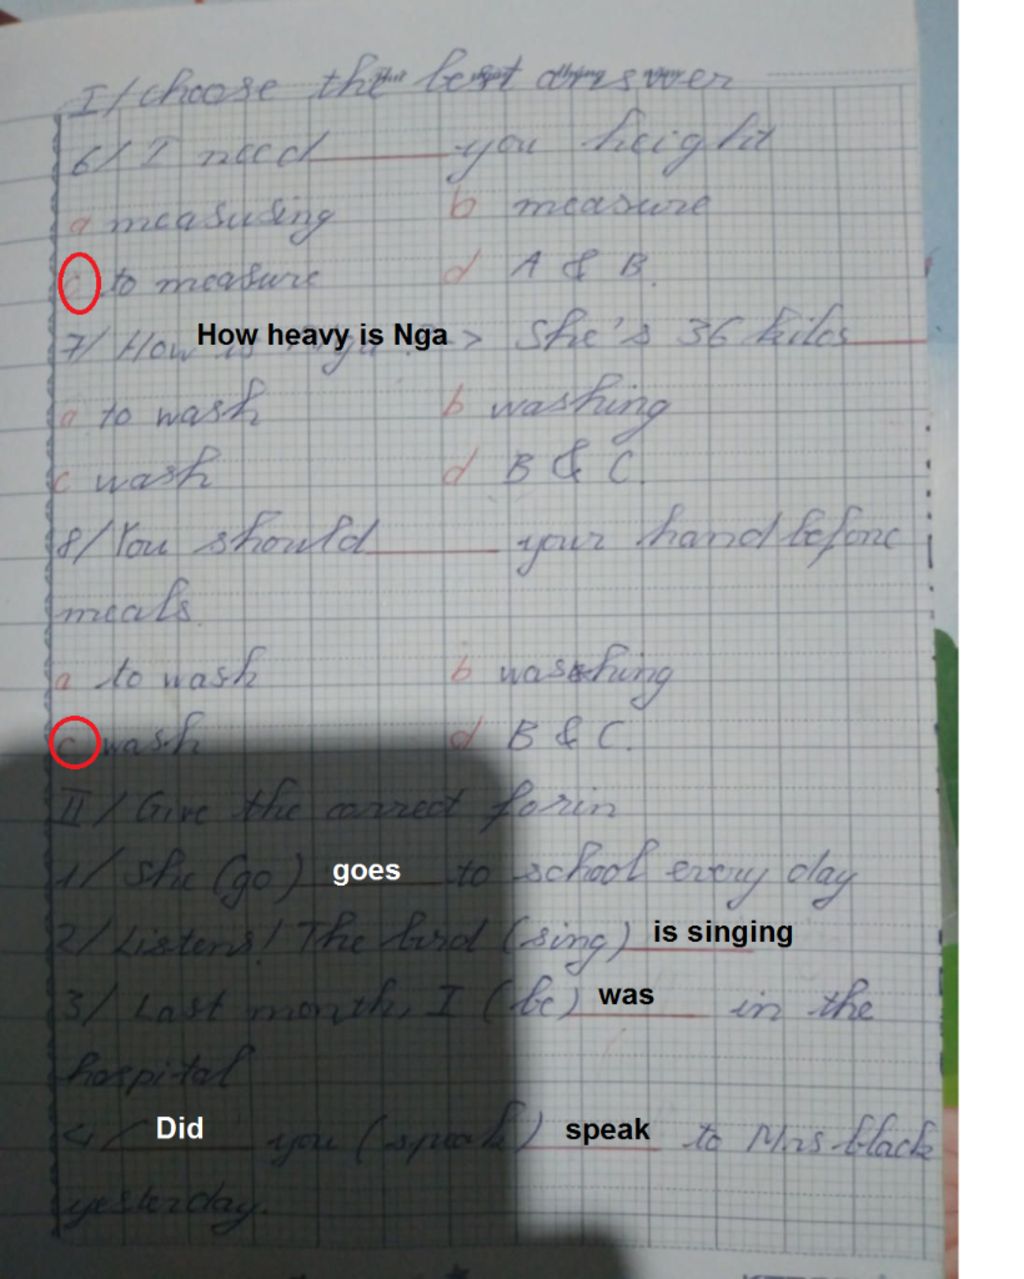 I/ choose the best answer
6/ I need ______ you height
a measusing b measure
c to measure d A & B.
7/ How How heavy is Nga > She's 36 kilos
a to wash b washing
c wash d B & C.
8/ You should ______ your hand before
meals.
a to wash b washing
c wash d B & C.
II/ Give the correct form
1/ She (go) goes to school every day
2/ Listens! The bird (sing) is singing
3/ Last month, I (be) was in the
hospital
4/ Did you (speak) speak to Mrs black
yesterday.